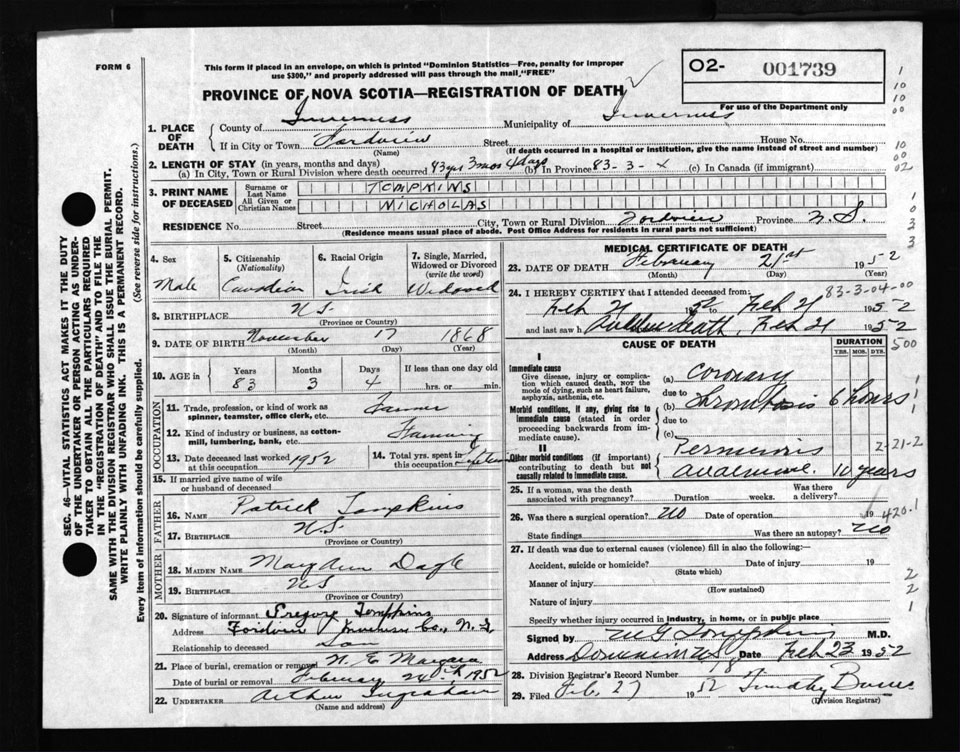 FORM 6
This form if placed in an envelope, on which is printed "Dominion Statistics—Free, penalty for improper
use $300," and properly addressed will pass through the mail, "FREE"
O2- 001739
For use of the Department only
PROVINCE OF NOVA SCOTIA—REGISTRATION OF DEATH
1. PLACE OF DEATH
County of Inverness Municipality of Inverness
If in City or Town Fordview Street House No.
(Name) (If death occurred in a hospital or institution, give the name instead of street and number)
2. LENGTH OF STAY (in years, months and days)
(a) In City, Town or Rural Division where death occurred 83 yrs 3 mos 4 days (b) In Province 83-3-4 (c) In Canada (if immigrant)
3. PRINT NAME OF DECEASED
Surname or Last Name TOMPKINS
All Given or Christian Names NICHOLAS
RESIDENCE No. Street City, Town or Rural Division Fordview Province N.S.
(Residence means usual place of abode. Post Office Address for residents in rural parts not sufficient)
4. Sex Male
5. Citizenship (Nationality) Canadian
6. Racial Origin Irish
7. Single, Married, Widowed or Divorced (write the word) Widowed
8. BIRTHPLACE N.S.
(Province or Country)
9. DATE OF BIRTH November 17 1868
(Month) (Day) (Year)
10. AGE in Years 83 Months 3 Days 4 If less than one day old hrs. or min.
OCCUPATION
11. Trade, profession, or kind of work as spinner, teamster, office clerk, etc. Farmer
12. Kind of industry or business, as cotton-mill, lumbering, bank, etc. Farming
13. Date deceased last worked at this occupation 1952
14. Total yrs. spent in this occupation
15. If married give name of wife or husband of deceased
FATHER
16. NAME Patrick Tompkins
17. BIRTHPLACE N.S.
(Province or Country)
MOTHER
18. MAIDEN NAME Mary Ann Doyle
19. BIRTHPLACE N.S
(Province or Country)
20. Signature of informant Gregory Tompkins
Address Fordview Inverness Co., N.S.
Relationship to deceased
21. Place of burial, cremation or removal N. E. Margaree
Date of burial or removal February 24th 1952
22. UNDERTAKER Arthur Ingraham
(Name and address)
MEDICAL CERTIFICATE OF DEATH
23. DATE OF DEATH February 21st 1952
(Month) (Day) (Year)
83-3-04-00
24. I HEREBY CERTIFY that I attended deceased from:
Feb 21 1952 to Feb 21 1952
and last saw h death, Feb 21 1952
CAUSE OF DEATH DURATION
YRS. MOS. DYS.
500
I
Immediate cause
Give disease, injury or complication which caused death, NOT the mode of dying, such as heart failure, asphyxia, asthenia, etc.
(a) Coronary
due to
(b) Thrombosis 6 hours
Morbid conditions, if any, giving rise to immediate cause (stated in order proceeding backwards from immediate cause).
due to
(c)
II
Other morbid conditions (if important) contributing to death but not causally related to immediate cause.
Pernicious 2-21-2
Anaemia 10 years
25. If a woman, was the death associated with pregnancy? Duration weeks. Was there a delivery?
26. Was there a surgical operation? no Date of operation 19
420.1
State findings Was there an autopsy? no
27. If death was due to external causes (violence) fill in also the following:—
Accident, suicide or homicide? Date of injury 19
(State which)
Manner of injury
(How sustained)
Nature of injury
Specify whether injury occurred in industry, in home, or in public place
Signed by M G Tompkins M.D.
Address Dominion NS Date Feb 23 1952
28. Division Registrar's Record Number
29. Filed Feb 27 1952
(Division Registrar)
SEC. 46-VITAL STATISTICS ACT MAKES IT THE DUTY
OF THE UNDERTAKER OR PERSON ACTING AS UNDERTAKER TO OBTAIN ALL THE PARTICULARS REQUIRED
IN THE "REGISTRATION OF DEATH" AND TO FILE THE
SAME WITH THE DIVISION REGISTRAR WHO SHALL ISSUE THE BURIAL PERMIT.
WRITE PLAINLY WITH UNFADING INK. THIS IS A PERMANENT RECORD.
Every item of information should be carefully supplied. (See reverse side for instructions.)